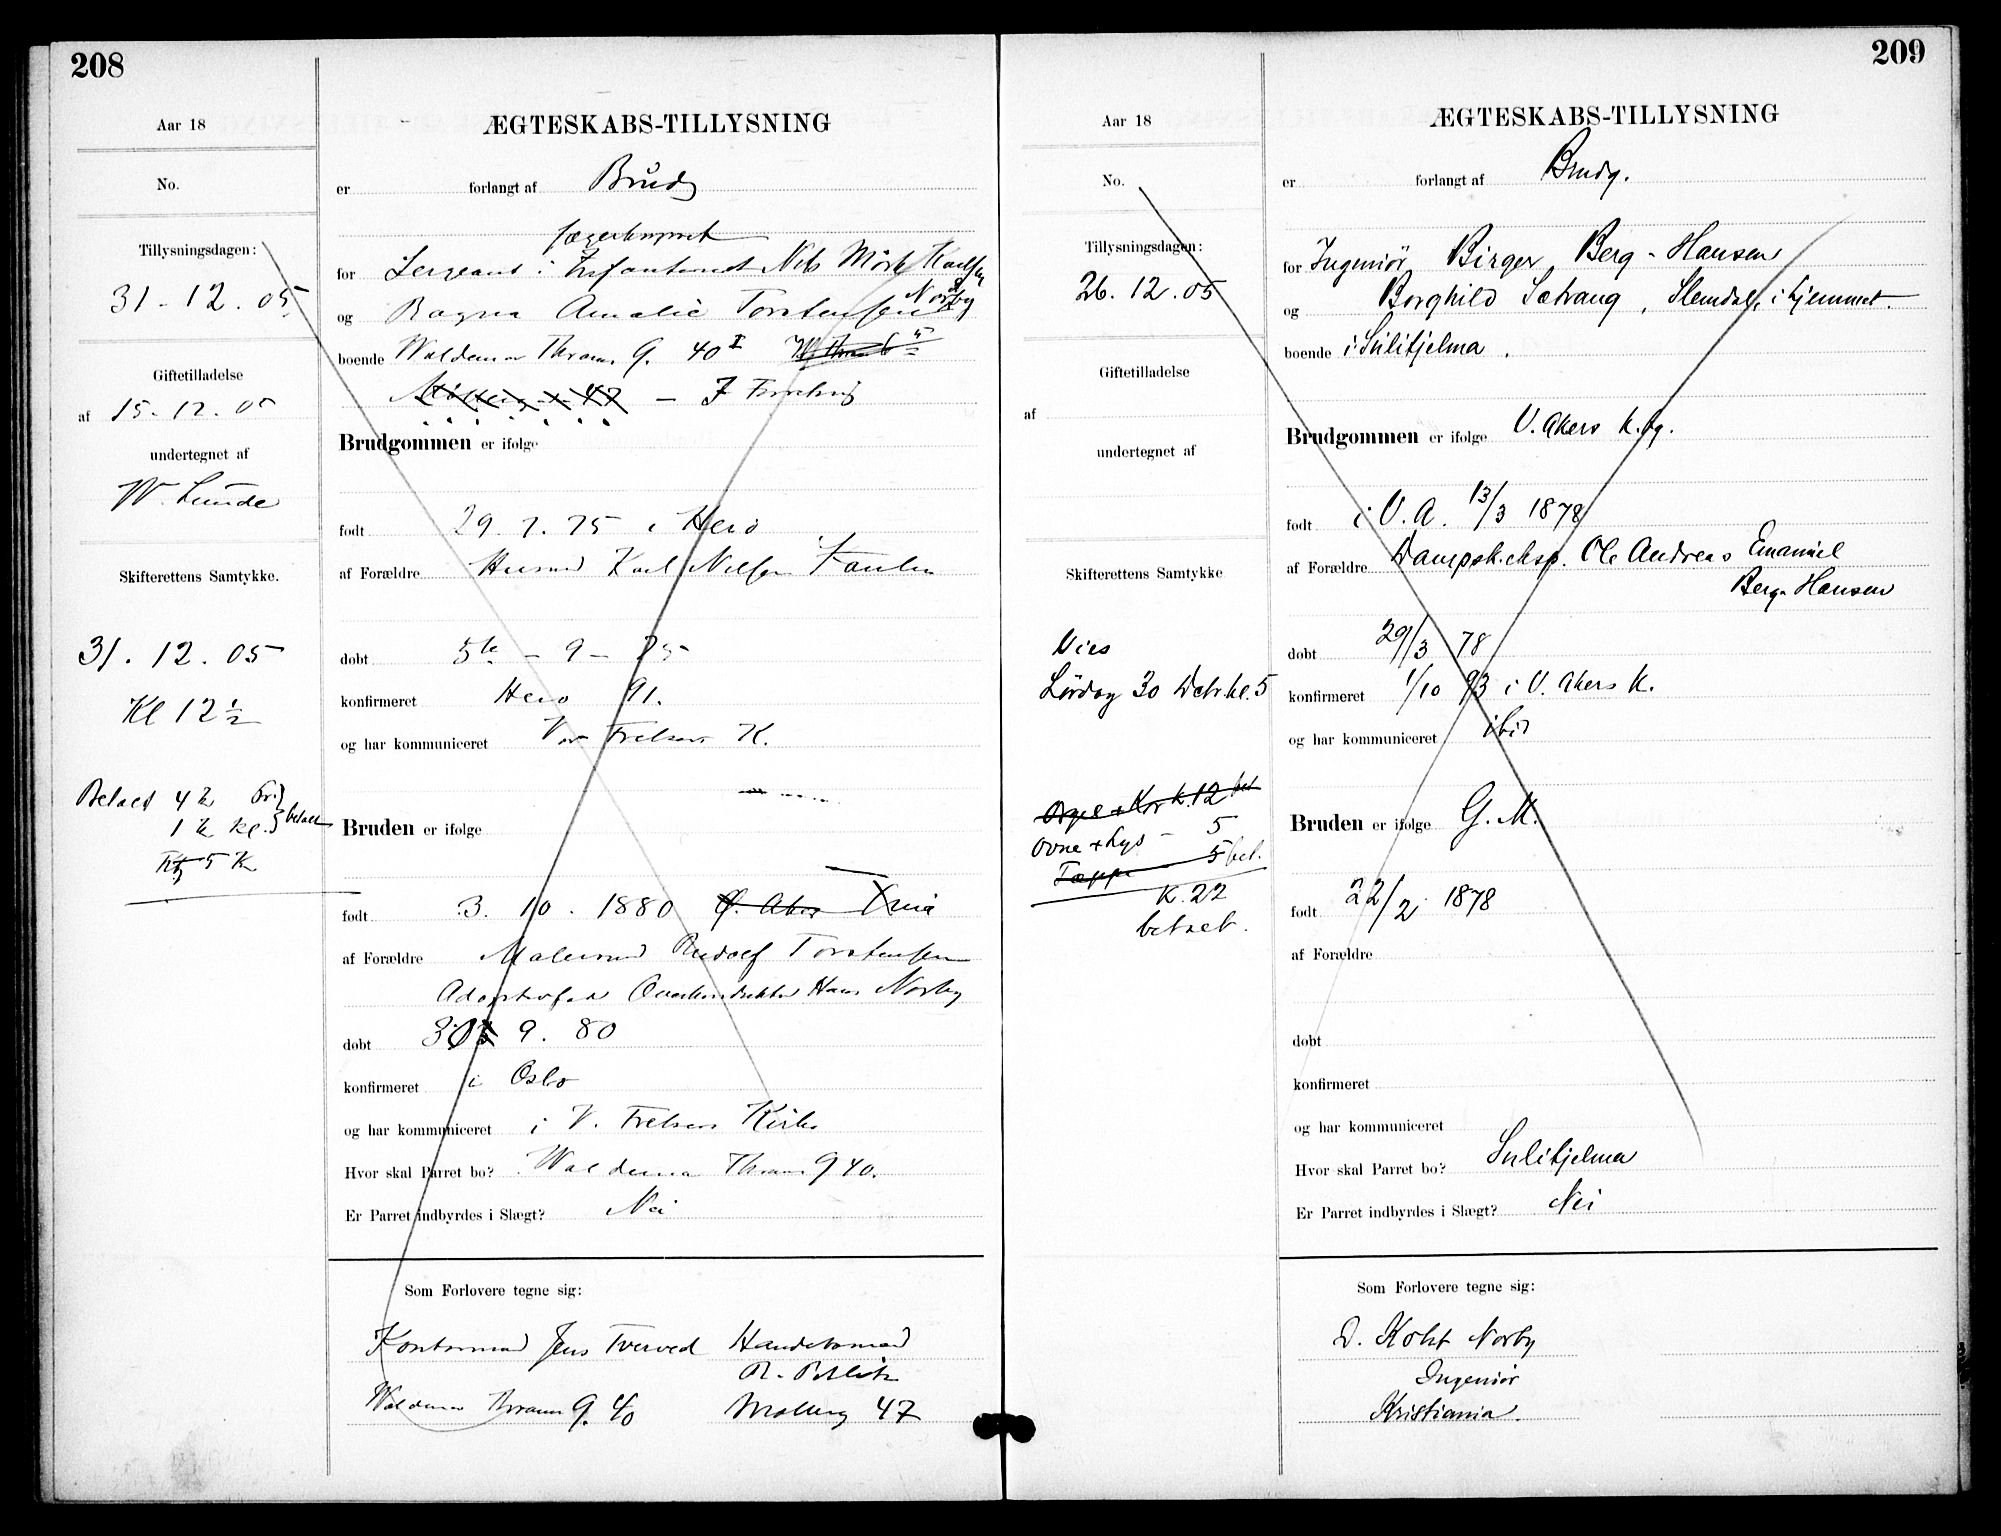 208
Aar 18
No.
Tillysningsdagen:
31 - 12 . 05
Giftetilladelse
af 15 - 12 . 05
undertegnet af
W. Lunde
Skifterettens Samtykke.
31 . 12 . 05
Kl 12 1/2
4 K
1 K kl. betalt
5 K
ÆGTESKABS-TILLYSNING
er forlangt af Brudg
for Sergeant i Nils Mörk Karlsen
og Ragna Amalie Torstensen Norby
boende Waldemar Thranes G. 40 II
47 —
Brudgommen er ifølge
født 29 . 7 . 75 i Herö
af Forældre Husmd Karl Nilsen
døbt 5te - 9 - 75
konfirmeret Herö 91.
og har kommuniceret Vor Frelsers K.
Bruden er ifølge
født 3 . 10 . 1880 Ø. Aker Xnia
af Forældre Malermd Rudolf Torstensen
Adoptivfar Overkonduktør Hans Norby
døbt 30 9 . 80
konfirmeret i Oslo
og har kommuniceret i V. Frelsers Kirke
Hvor skal Parret bo? Waldemar Thranes G 40.
Er Parret indbyrdes i Slægt? Nei
Som Forlovere tegne sig:
Kontormand Jens Tverved Handelsmand
Waldemar Thranes G. 40 47
209
Aar 18
No.
Tillysningsdagen:
26. 12 . 05
Giftetilladelse
af
undertegnet af
Skifterettens Samtykke
Vies
Lördag 30 Decbr kl. 5
Orgel + Kor k. 12 bet
Ovne + Lys - 5
Tæppe 5 bet.
K. 22
betalt.
ÆGTESKABS-TILLYSNING
er forlangt af Brudg.
for Ingeniör Birger Berg-Hansen
og Borghild Sætrang, Slemdal, i hjemmet
boende i Sulitjelma.
Brudgommen er ifølge V. Akers K.bg.
født i V. A. 13/3 1878
af Forældre Dampsk.eksp. Ole Andreas Emanuel
Berg-Hansen
døbt 29/3 78
konfirmeret 1/10 93 i V. Akers K.
og har kommuniceret ibid
Bruden er ifølge G. M.
født 22/2 1878
af Forældre
døbt
konfirmeret
og har kommuniceret
Hvor skal Parret bo? Sulitjelma
Er Parret indbyrdes i Slægt? Nei
Som Forlovere tegne sig:
D. Koht Norby
Ingeniör
Kristiania.